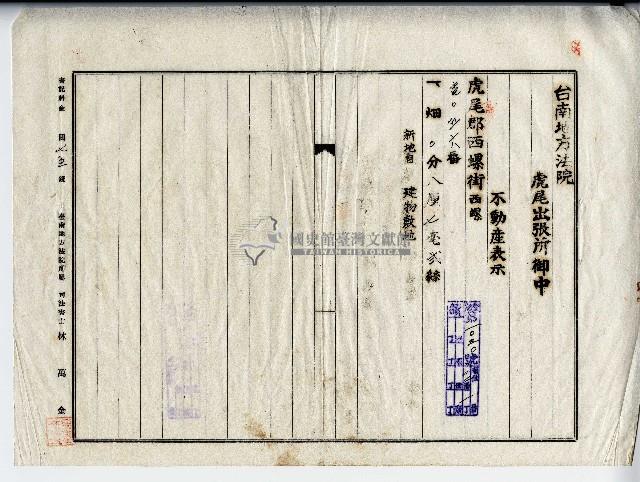 台南地方法院
虎尾出張所御中
不動産表示
虎尾郡西螺街西螺
一 畑 〇分八厘七毫貳絲
新地目 建物敷地
國史館臺灣文獻館
TAIWAN HISTORICA
書記料金 圓 錢 臺南地方法院所屬 司法書士 林萬金